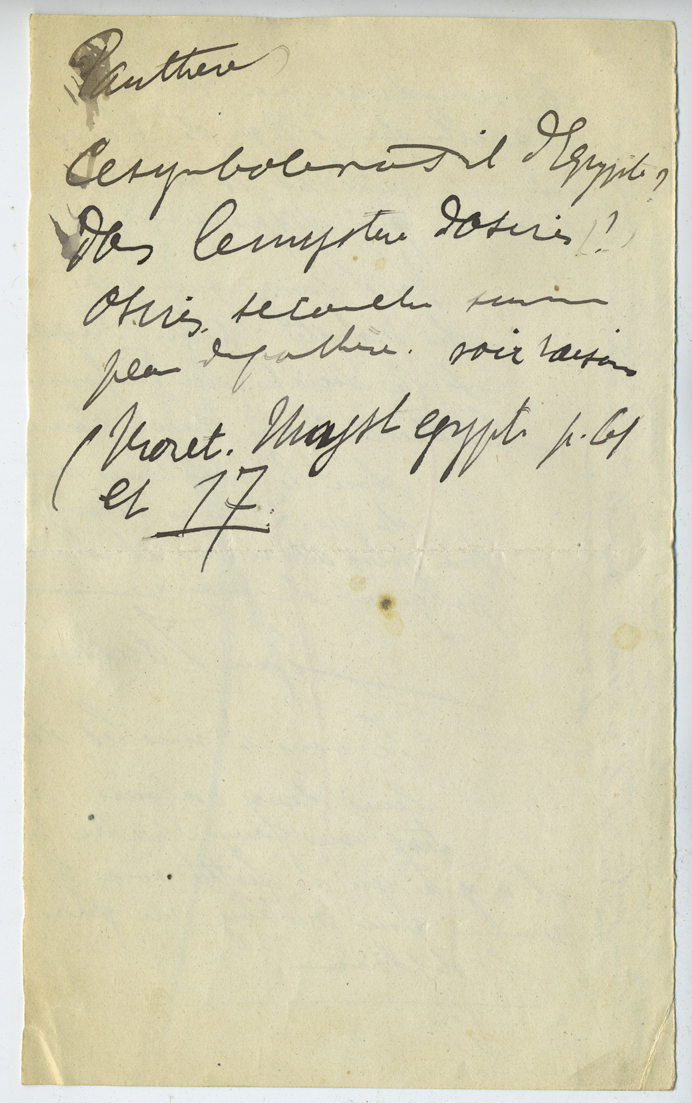 Panthere
Ce symbole vient il d'Egypte ?
Ds le mystere d'Osiris (?)
Osiris se couche sur une
peau de panthère. voir
(Moret. Myst egypt. p.
et 17